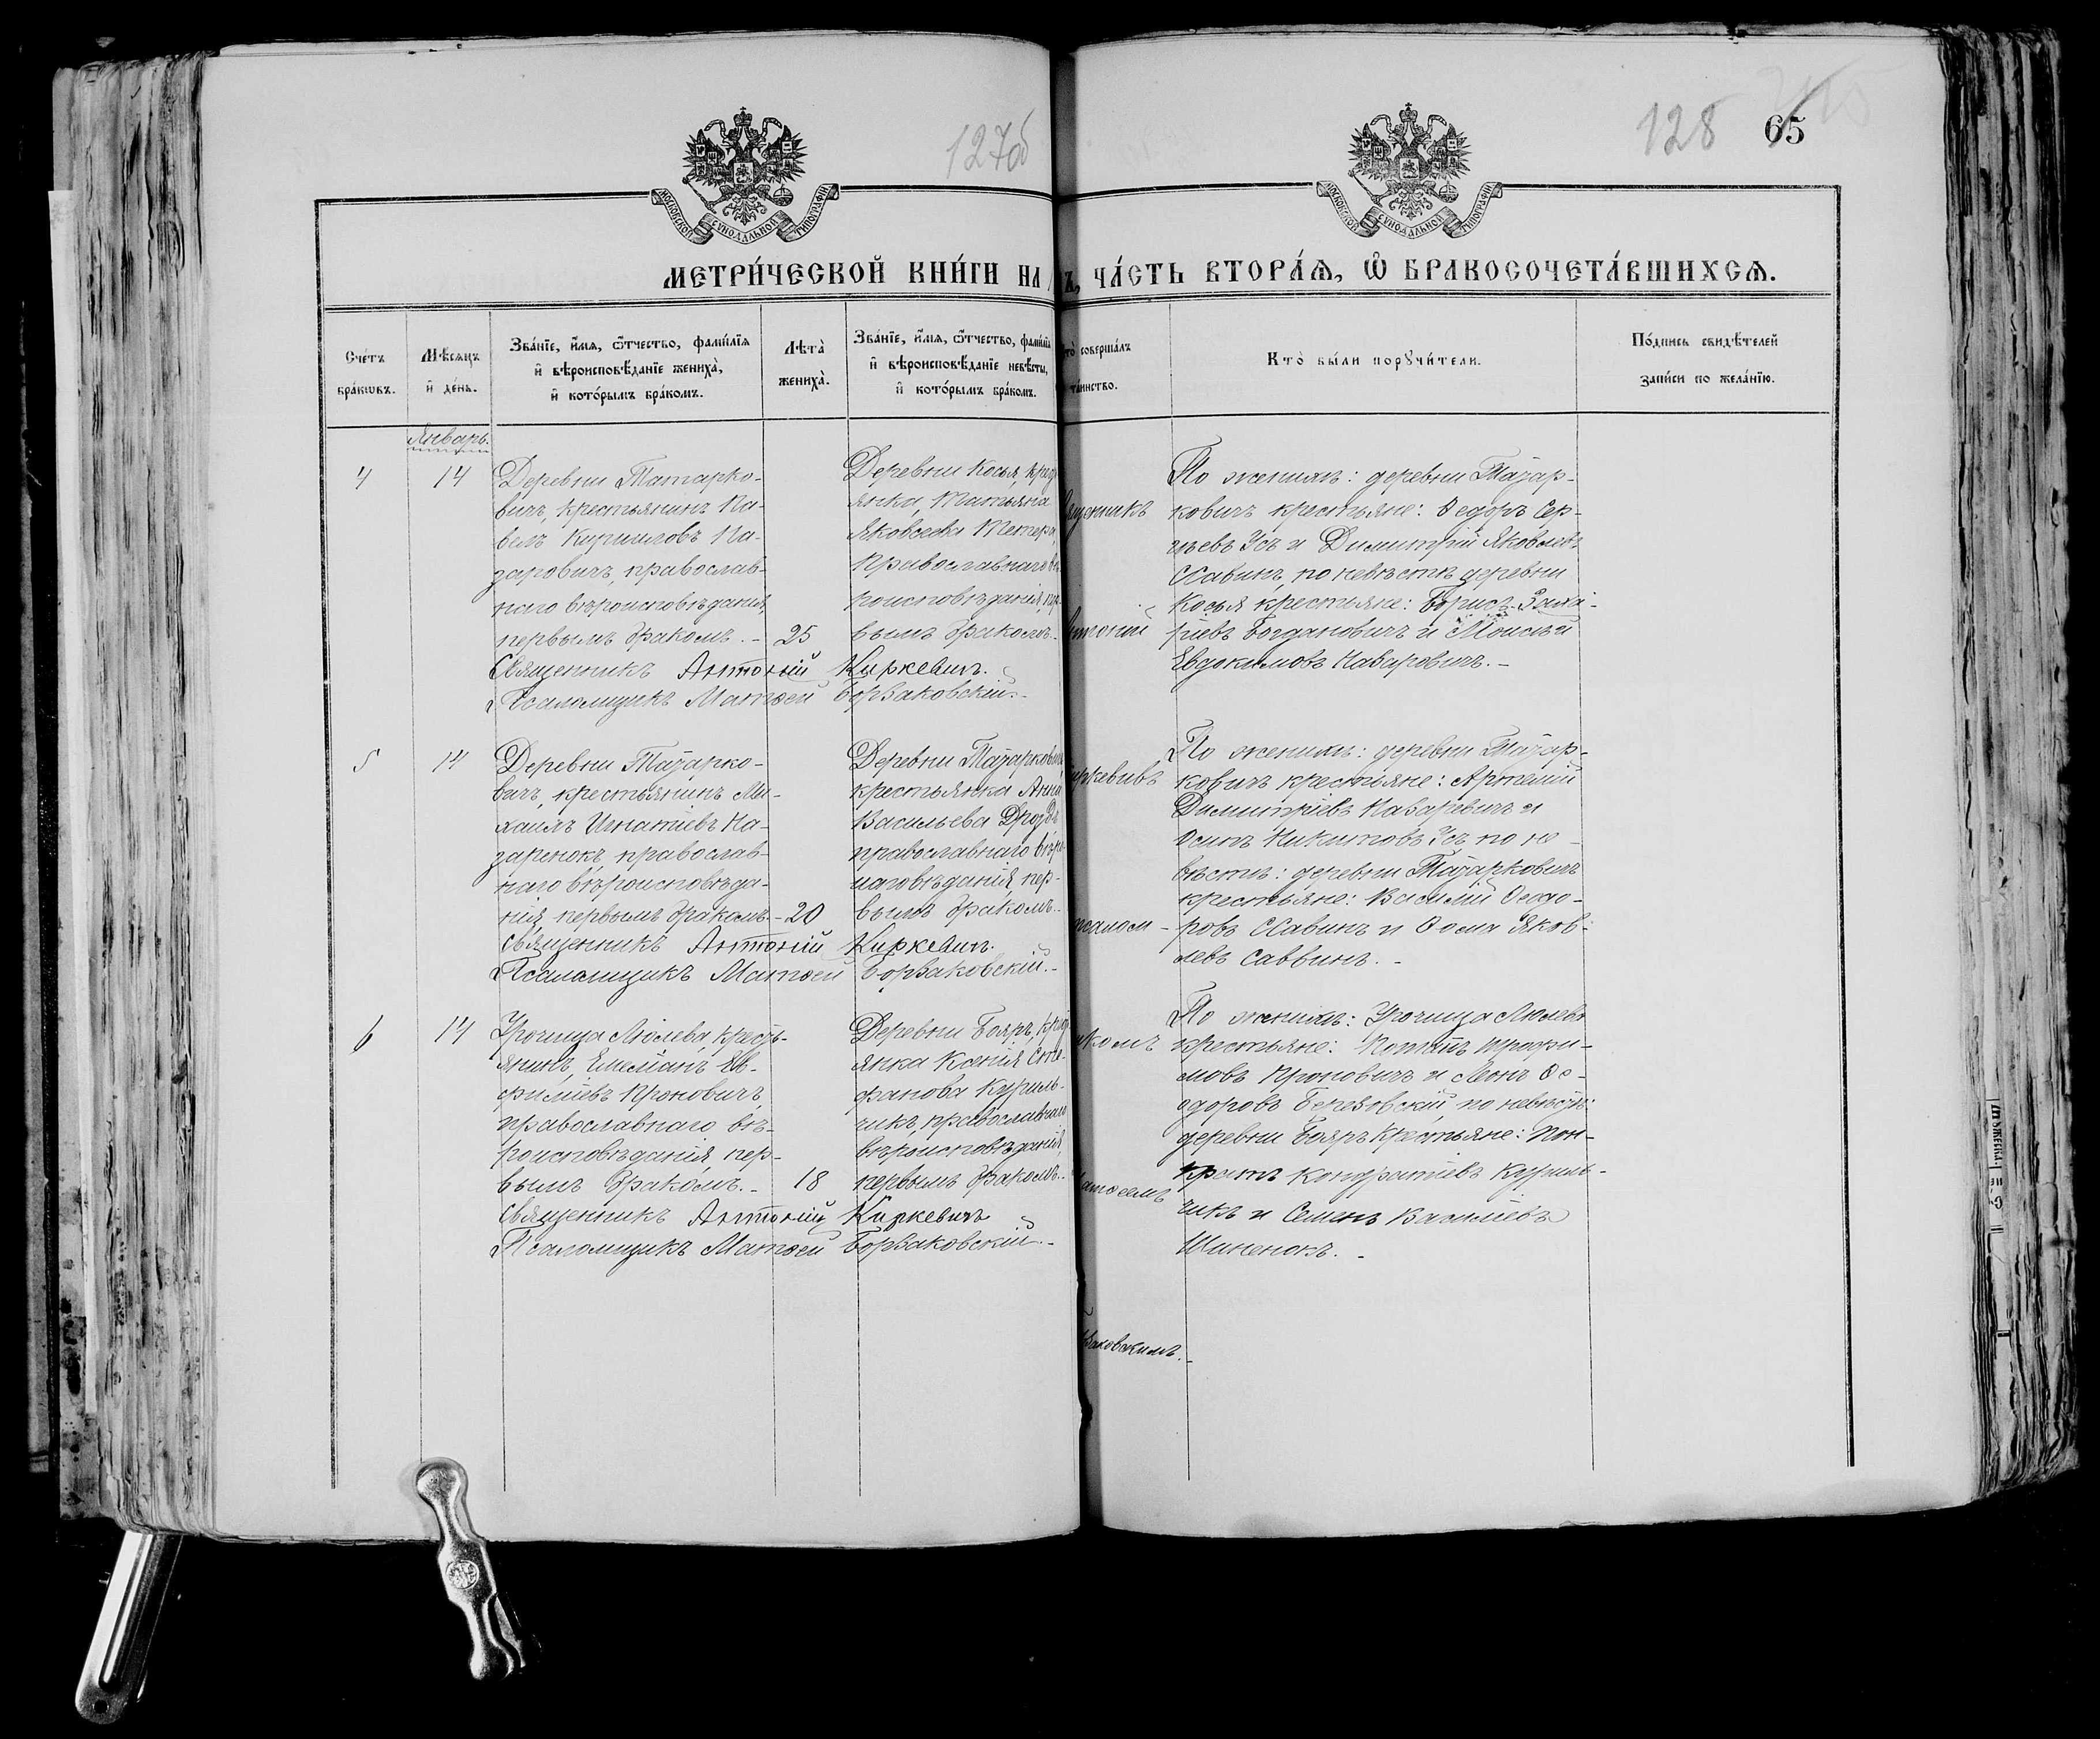 127об
128
65
МОСКОВСКОЙ СѴНОДАЛЬНОЙ ТИПОГРАФІИ
МОСКОВСКОЙ СѴНОДАЛЬНОЙ ТИПОГРАФІИ
МЕТРИ́ЧЕСКОЙ КНИ́ГИ НА
ЧА́СТЬ ВТОРА́Ѧ, Ѽ БРАКОСОЧЕТА́ВШИХСѦ.
Сче́тъ
бра́кωвъ.
Мѣ́сяцъ
и҆ де́нь.
Зва́нїе, и҆́мѧ, ѻ҆́тчество, фами́лїѧ
и҆ вѣроисповѣ́данїе жениха̀,
и҆ кото́рымъ бра́комъ.
Лѣ́та̀
жениха̀.
Зва́нїе, и҆́мѧ, ѻ҆́тчество, фами́лїѧ
и҆ вѣроисповѣ́данїе невѣ́сты,
и҆ кото́рымъ бра́комъ.
соверша́лъ
та́инство.
Кто̀ бы́ли порꙋчи́тели.
По́дпись свидѣ́телей
за́писи по жела́нїю.
Январь.
4
14
Деревни Татарко-
вичъ, крестьянинъ Па-
велъ Кирилловъ На-
заровичъ, православ-
наго вѣроисповѣданія,
первымъ бракомъ. -
25
Деревни Косья, крес
янка Татьяна
Яковлева Тетеря,
православнаго вѣ
роисповѣданія, пер-
вымъ бракомъ.
Священникъ Антоній Киркевичъ.
Псаломщикъ Матѳей Борзаковскій.-
По женихѣ: деревни Татар-
ковичъ крестьяне: Ѳедоръ Сер-
гѣевъ Усъ и Димитрій Яковлевъ
Савинъ, по невѣстѣ деревни
Косья крестьяне: Борисъ Заха-
ріевъ Богдановичъ и Моисѣй
Евдокимовъ Назаровичъ. -
5
14
Деревни Татарко-
вичъ, крестьянинъ Ми-
хаилъ Игнатіевъ На-
заренокъ, православ-
наго вѣроисповѣда-
нія, первымъ бракомъ. -
20
Деревни Татарковичъ
крестьянка Анна
Васильева Дроздъ
православнаго вѣро-
исповѣданія, пер-
вымъ бракомъ.
Священникъ Антоній Киркевичъ.
Псаломщикъ Матѳей Борзаковскій. -
По женихѣ: деревни Татар-
ковичъ крестьяне: Артемій
Димитріевъ Назаревичъ и
Осипъ Никитовъ Усъ по не-
вѣстѣ: деревни Татарковичъ
крестьяне: Василій Ѳеодо-
ровъ Савинъ и Ѳома Яков-
левъ Саввинъ. -
6
14
Урочища Люлева, кресть-
янинъ, Емеліанъ Ев-
фиміевъ Кроновичъ,
православнаго вѣ-
роисповѣданія, пер-
вымъ бракомъ. -
18
Деревни Бояръ, крес
янка Ксенія Сте-
фанова Куриль-
чикъ, православнаго
вѣроисповѣданія,
первымъ бракомъ.
Священникъ Антоній Киркевичъ
Псаломщикъ Матѳей Борзаковскій. -
По женихѣ: Урочища Люлева
крестьяне: Трофи-
мовъ Кроновичъ и Леонъ Ѳе-
одоровъ Березовскій по невѣстѣ:
деревни Бояръ крестьяне: Пон-
кратъ Кондратіевъ Куриль-
чикъ и Семенъ Василіевъ
Шиненокъ. -